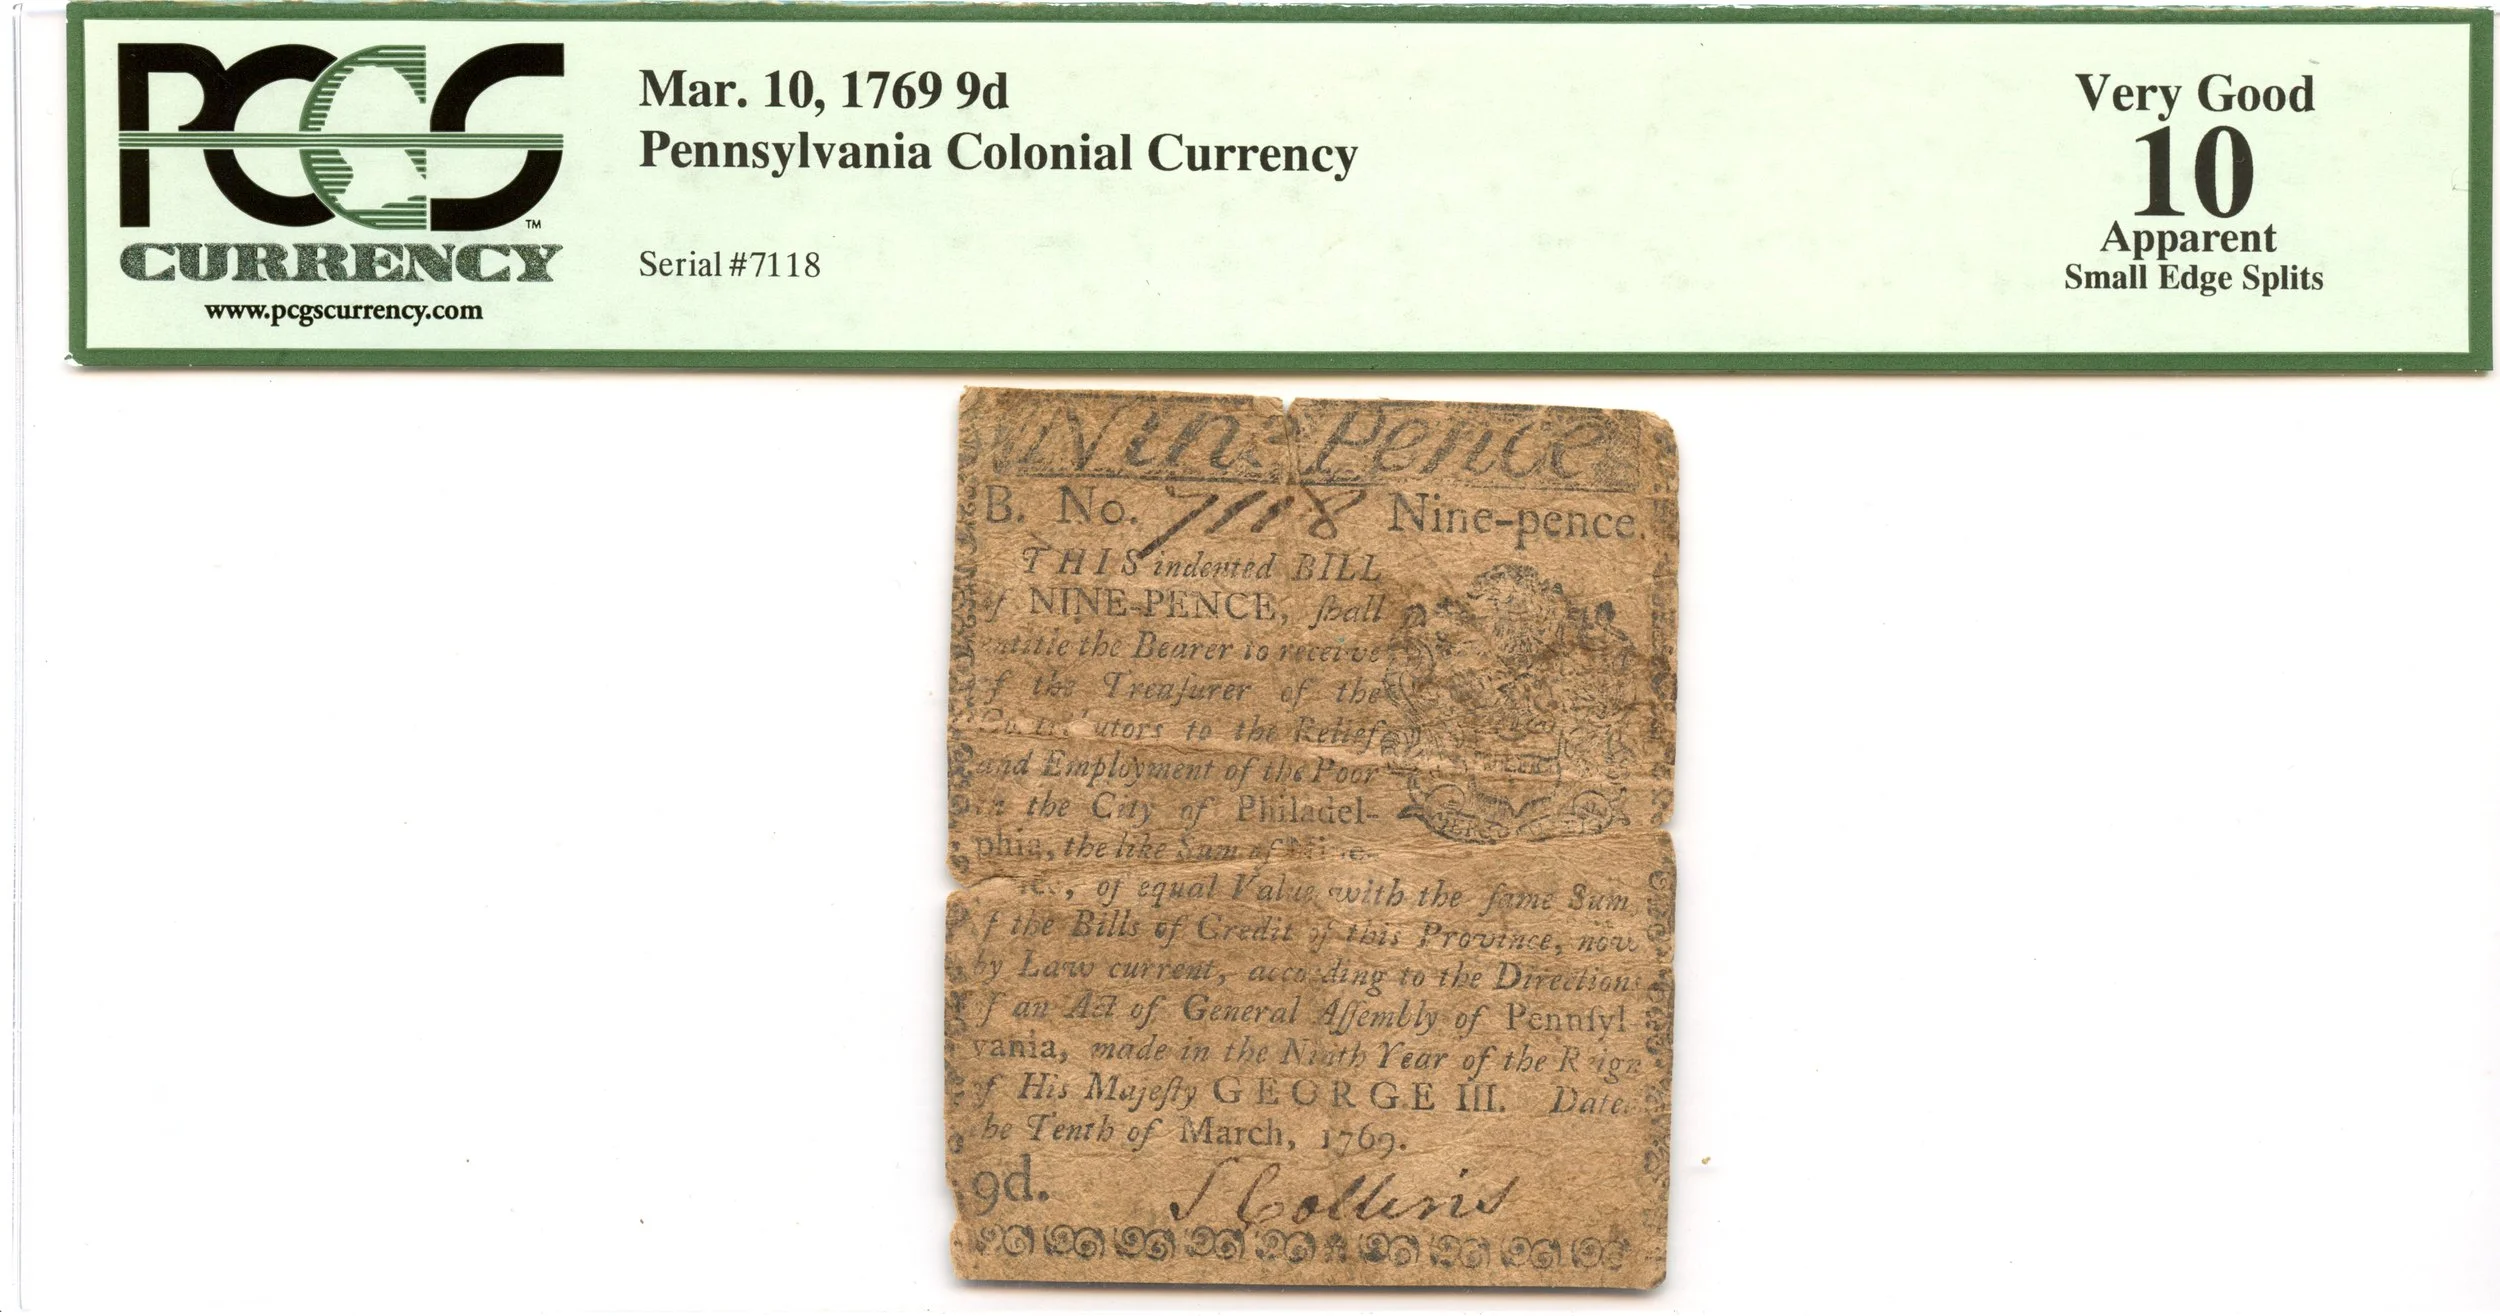 PCGS
TM
CURRENCY
www.pcgscurrency.com
Mar. 10, 1769 9d
Pennsylvania Colonial Currency
Serial #7118
Very Good
10
Apparent
Small Edge Splits
Nine Pence
B. No. 7118 Nine-pence.
THIS indented BILL
of NINE-PENCE, ſhall
entitle the Bearer to receive
of the Treaſurer of the
Contributors to the Relief
and Employment of the Poor
in the City of Philadel-
phia, the like Sum of Nine-
, of equal Value with the ſame Sum
of the Bills of Credit of this Province, now
by Law current, according to the Directions
of an Act of General Aſſembly of Pennſyl-
vania, made in the Ninth Year of the Reign
of His Majeſty GEORGE III. Dated
the Tenth of March, 1769.
9d. S Collins